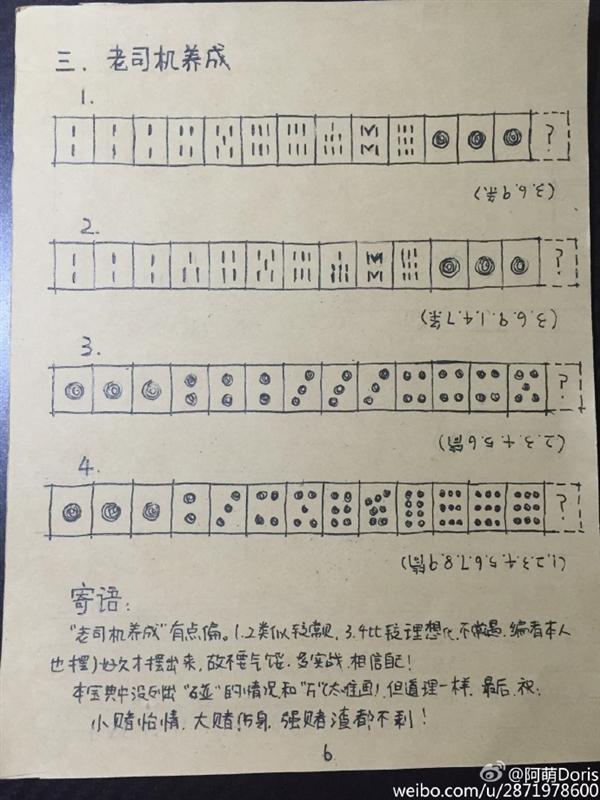 三. 老司机养成
1.
?
(3.6.9条)
2.
?
(3.6.9.1.4.7条)
3.
?
(2.3.4.5.6筒)
4.
?
(1.2.3.4.5.6.7.8.9筒)
寄语:
"老司机养成"有点偏。1.2类似较常规, 3.4比较理想化, 不常遇, 编者本人
也摆了好久才摆出来, 故不要气馁. 多实战, 相信自己!
本宝典中没列出"碰"的情况和"万"(太难画), 但道理一样, 最后, 祝:
小赌怡情, 大赌伤身, 强赌渣都不剩!
6
@阿萌Doris
weibo.com/u/2871978600